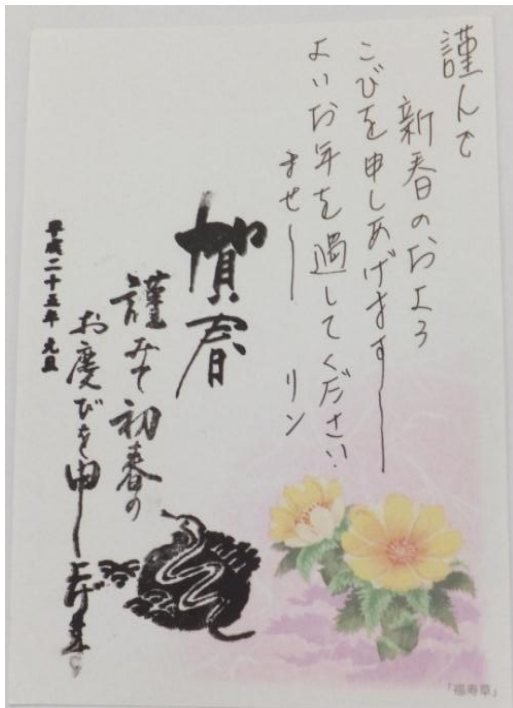 謹んで
新春のおよろ
こびを申しあげます
よいお年を過してください
ませ
リン
賀春
謹みて初春の
お慶びを申し上げます
平成二十五年 元旦
「福寿草」